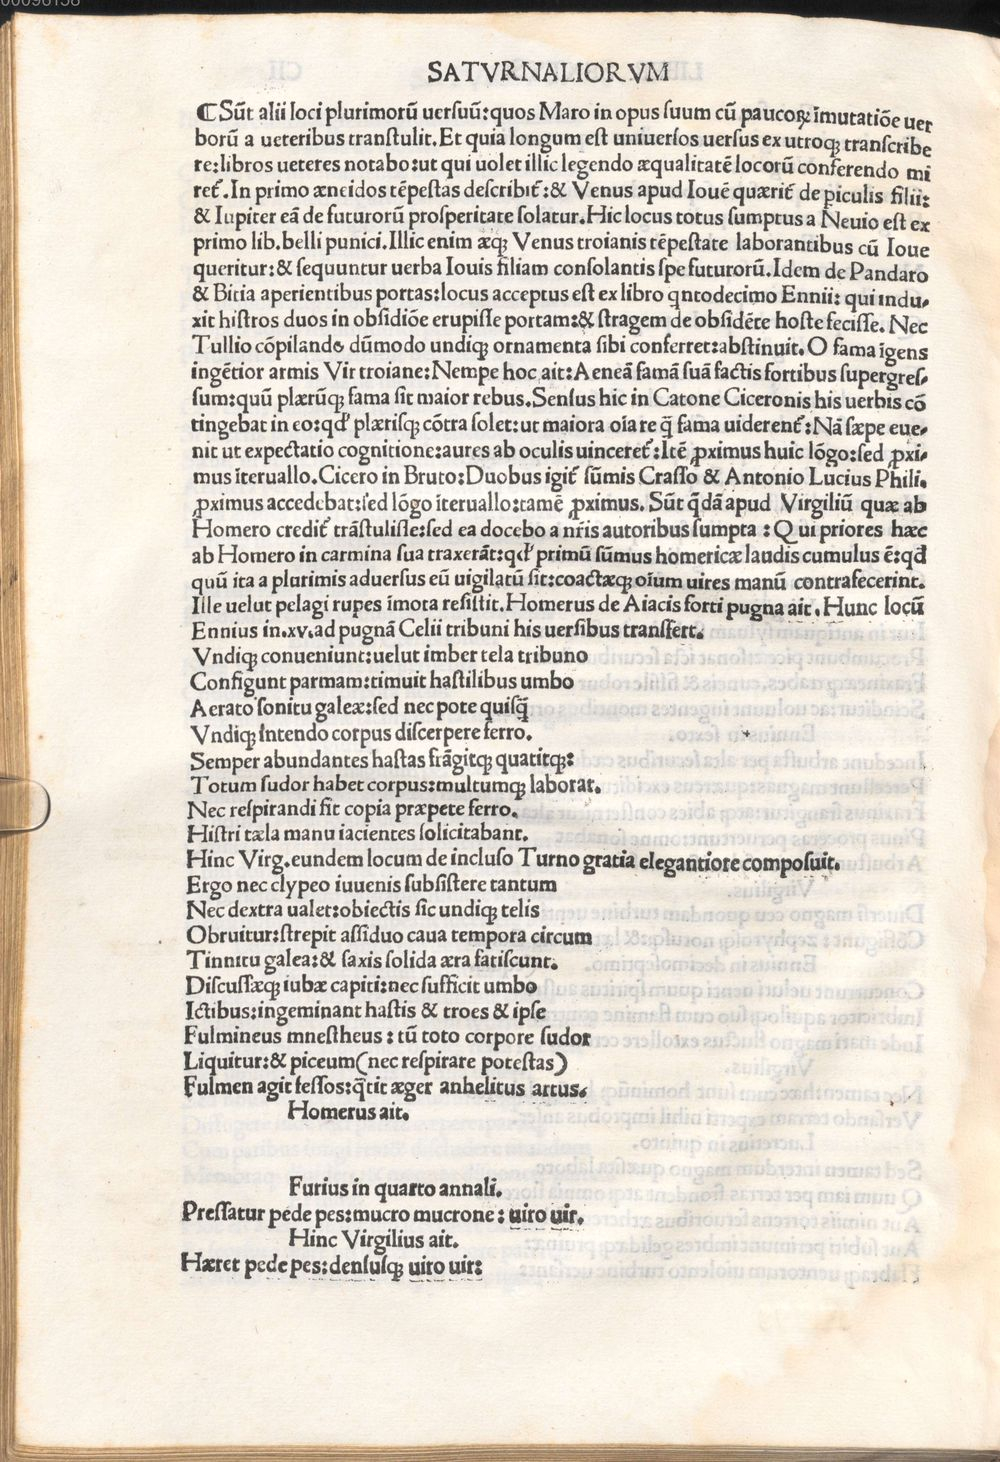 00096158
SATVRNALIORVM
⸿ Sūt alii loci plurimorū uersuū: quos Maro in opus suum cū paucoꝝ īmutatiōe uer
borū a ueteribus transtulit. Et quia longum est uniuersos uersus ex utroqꝫ transcribe
re: libros ueteres notabo: ut qui uolet illic legendo æqualitatē locorū conferendo mi
ret᷑. In primo æneidos tēpestas describit᷑: & Venus apud Iouē quærit᷑ de piculis filii:
& Iupiter eā de futurorū prosperitate solatur. Hic locus totus sumptus a Neuio est ex
primo lib. belli punici. Illic enim æqꝫ Venus troianis tēpestate laborantibus cū Ioue
queritur: & sequuntur uerba Iouis filiam consolantis spe futurorū. Idem de Pandaro
& Bitia aperientibus portas: locus acceptus est ex libro qntodecimo Ennii: qui indu-
xit histros duos in obsidiōe erupisse portam: & stragem de obsidēte hoste fecisse. Nec
Tullio cōpilando dūmodo undiqꝫ ornamenta sibi conferret: abstinuit. O fama īgens
ingētior armis Vir troiane: Nempe hoc ait: Aeneā famā suā factis fortibus supergres-
sum: quū plærūqꝫ fama sit maior rebus. Sensus hic in Catone Ciceronis his uerbis cō
tingebat in eo: qđ plærisqꝫ cōtra solet: ut maiora oīa re q̄ fama uiderent᷑: Nā sæpe eue-
nit ut expectatio cognitione: aures ab oculis uinceret᷑: Itē ꝓximus huic lōgo: sed ꝓxi-
mus īteruallo. Cicero in Bruto: Duobus igit᷑ sūmis Crasso & Antonio Lucius Phili.
ꝓximus accedebat: sed lōgo īteruallo: tamē ꝓximus. Sūt q̄dā apud Virgiliū quæ ab
Homero credit᷑ trāstulisse: sed ea docebo a nr̄is autoribus sumpta: Qui priores hæc
ab Homero in carmina sua traxerāt: qđ primū sūmus homericæ laudis cumulus ē: qđ
quū ita a plurimis aduersus eū uigilatū sit: coactæqꝫ oīum uires manū contrafecerint.
Ille uelut pelagi rupes īmota resistit. Homerus de Aiacis forti pugna ait. Hunc locū
Ennius in .xv. ad pugnā Celii tribuni his uersibus transfert.
Vndiqꝫ conueniunt: uelut imber tela tribuno
Configunt parmam: timuit hastilibus umbo
Aerato sonitu galeæ: sed nec pote quisq̄
Vndiqꝫ intendo corpus discerpere ferro.
Semper abundantes hastas frāgitqꝫ quatitqꝫ:
Totum sudor habet corpus: multumqꝫ laborat.
Nec respirandi fit copia præpete ferro.
Histri tæla manu iacientes solicitabant.
Hinc Virg. eundem locum de incluso Turno gratia elegantiore composuit.
Ergo nec clypeo iuuenis subsistere tantum
Nec dextra ualet: obiectis sic undiqꝫ telis
Obruitur: strepit assiduo caua tempora circum
Tinnitu galea: & saxis solida æra fatiscunt.
Discussæqꝫ iubæ capiti: nec sufficit umbo
Ictibus: ingeminant hastis & troes & ipse
Fulmineus mnestheus: tū toto corpore sudor
Liquitur: & piceum (nec respirare potestas)
Fulmen agit fessos: q̄tit æger anhelitus artus.
Homerus ait.
Furius in quarto annali.
Pressatur pede pes: mucro mucrone: uiro uir.
Hinc Virgilius ait.
Hæret pede pes: densusqꝫ uiro uir: